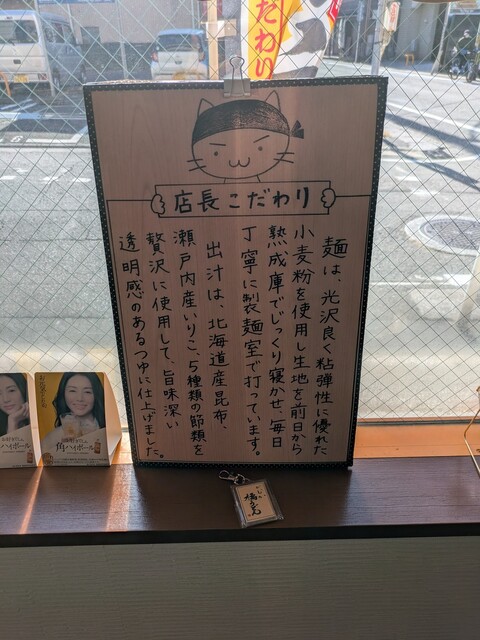 だわり
店長こだわり
麺は、光沢良く粘弾性に優れた
小麦粉を使用し生地を前日から
熟成庫でじっくり寝かせ、毎日
丁寧に製麺室で打っています。
出汁は、北海道産昆布、
瀬戸内産いりこ、5種類の節類を
贅沢に使用して、旨味深い
透明感のあるつゆに仕上げました。
ハイボール
角ハイボール